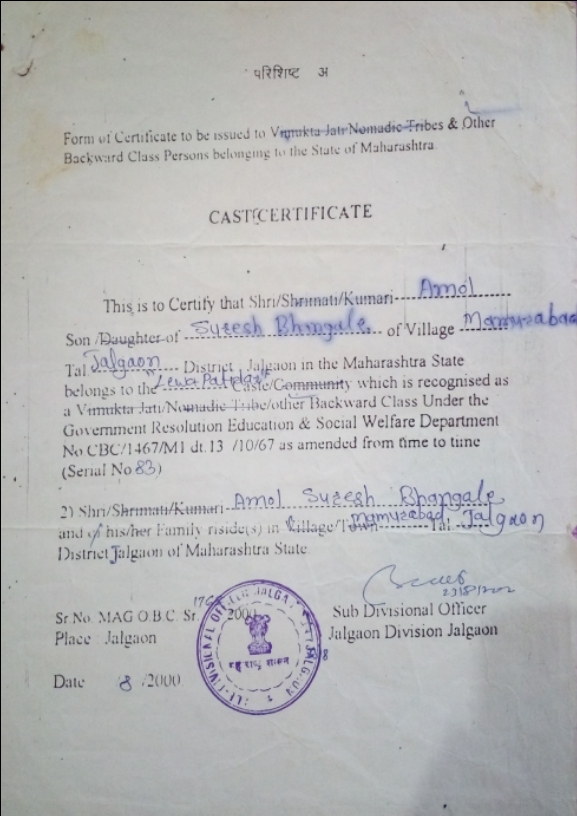 परिशिष्ट अ
Form of Certificate to be issued to Vimukta Jati Nomadic Tribes & Other
Backward Class Persons belonging to the State of Maharashtra.
CAST CERTIFICATE
This is to Certify that Shri/Shrimati/Kumari Amol
Son /Daughter of Suresh Bhangale of Village Mamurabad
Tal Jalgaon District Jalgaon in the Maharashtra State
belongs to the "Lewa Patidar" Caste/Community which is recognised as
a Vimukta Jati/Nomadic Tribe/other Backward Class Under the
Government Resolution Education & Social Welfare Department
No CBC/1467/M1 dt.13 /10/67 as amended from time to time
(Serial No 83)
2) Shri/Shrimati/Kumari Amol Suresh Bhangale
and of his/her Family riside(s) in Village/Town Mamurabad Tal. Jalgaon
District Jalgaon of Maharashtra State.
Sr.No. MAG O.B.C. Sr. 2000
Sub Divisional Officer
Place Jalgaon
Jalgaon Division Jalgaon
Date 8 /2000